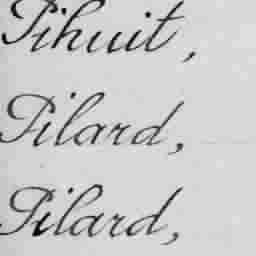 Pihuit,
Pilard,
Pilard,